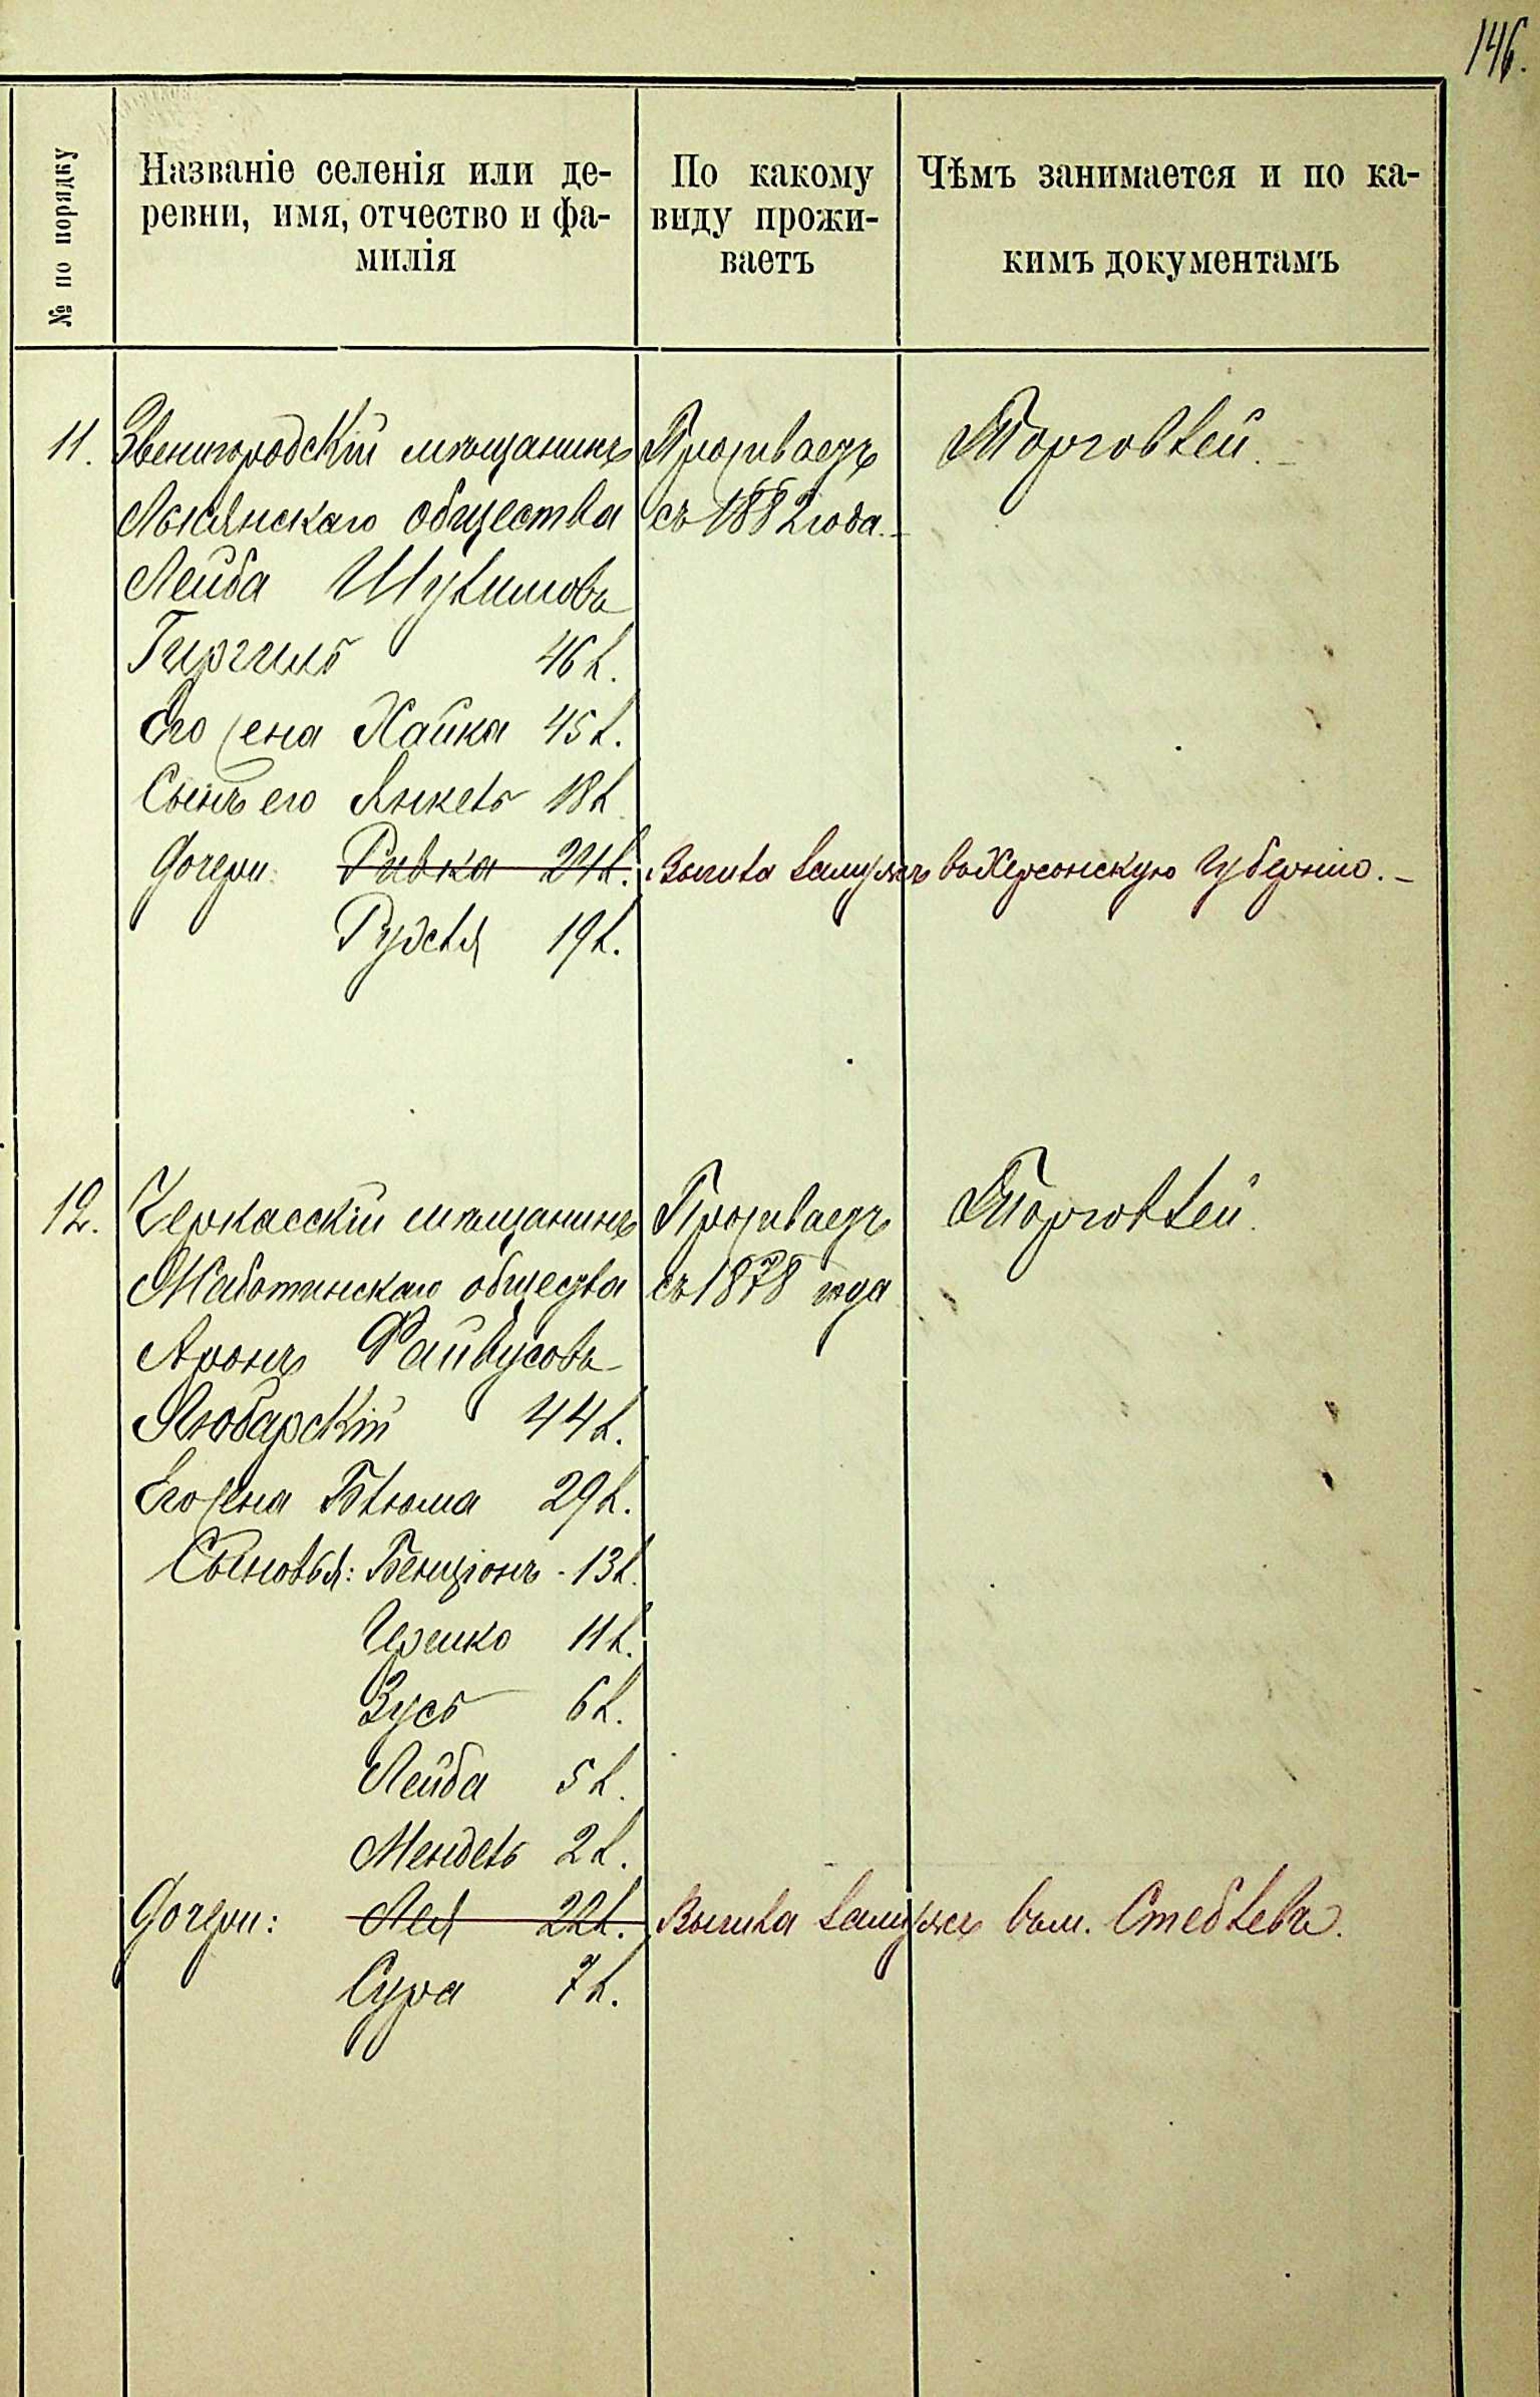 146.
№ по порядку
Названіе селенія или де-
ревни, имя, отчество и фа-
милія
По какому
виду прожи-
ваетъ
Чѣмъ занимается и по ка-
кимъ документамъ
11. Звенигородскій мѣщанинъ Проживаетъ Торговлей.
Лысянскаго общества съ 1882 года.
Лейба Шулимовъ
46 л.
Его жена Хайка 45 л.
Сынъ его Янкель 18 л.
Дочери: Ривка 21 л. Вышла замужъ въ Херсонскую Губернію.
Рухля 19 л.
12. Черкасскій мѣщанинъ Проживаетъ Торговлей.
Жаботинскаго общества съ 1878 года
Аронъ Файвусовъ
Любарскій 44 л.
Его жена Блюма 29 л.
Сыновья: Бенціонъ - 13 л.
Ицко 11 л.
Зусь 6 л.
Лейба 5 л.
Мендель 2 л.
Дочери: Лея 22 л. Вышла замужъ въ м. Стеблевъ.
Сура 7 л.